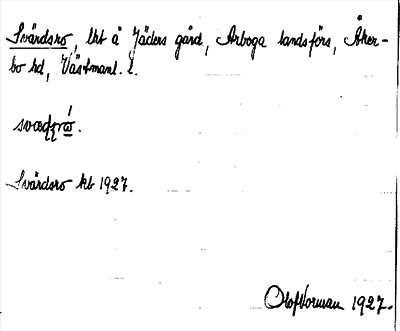 Svärdsro, lht å Jäders gård, Arboga landsförs, Åker-
bo hd, Västmanl. l.
Svärdsro kb 1927.
Olof Norman 1927.